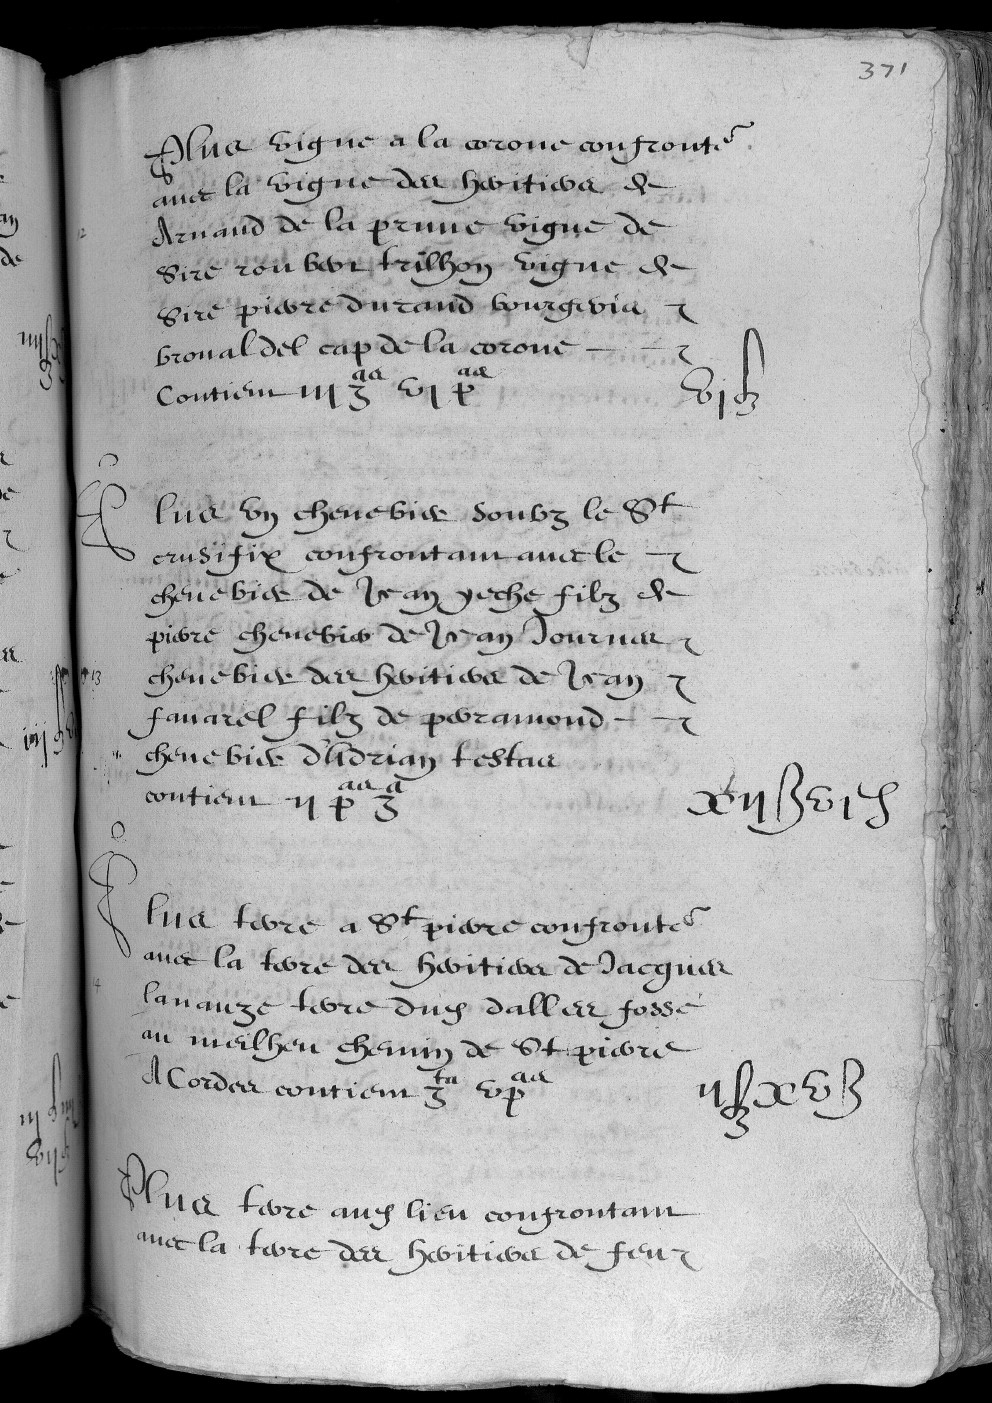 371
Plus vigne a la corone confronte
avec la vigne des heritiers de
Arnaud de la prune vigne de
Sire rouber trilhon vigne de
Sire pierre durand bourgeois
broual del cap de la corone
Contient iii 3 as vi p as
vi
Plus un chenevier soubz le St
crusifix confrontant avec le
chenevier de Jean yeche filz de
pierre chenevier de Jean Journes
chenevier des heritiers de Jean
favarel filz de peyramond
chenevier d'Adrian testas
contient ii p as 3 a
xii ß vi
Plus terre a St pierre confronte
avec la terre des heritiers de Jacques
lavauze terre dud dalles fosse
au meilheu chemin de St pierre
A Cordes contient 3 ta v p as
ii xv ß
Plus terre aud lieu confrontant
avec la terre des heritiers de feu